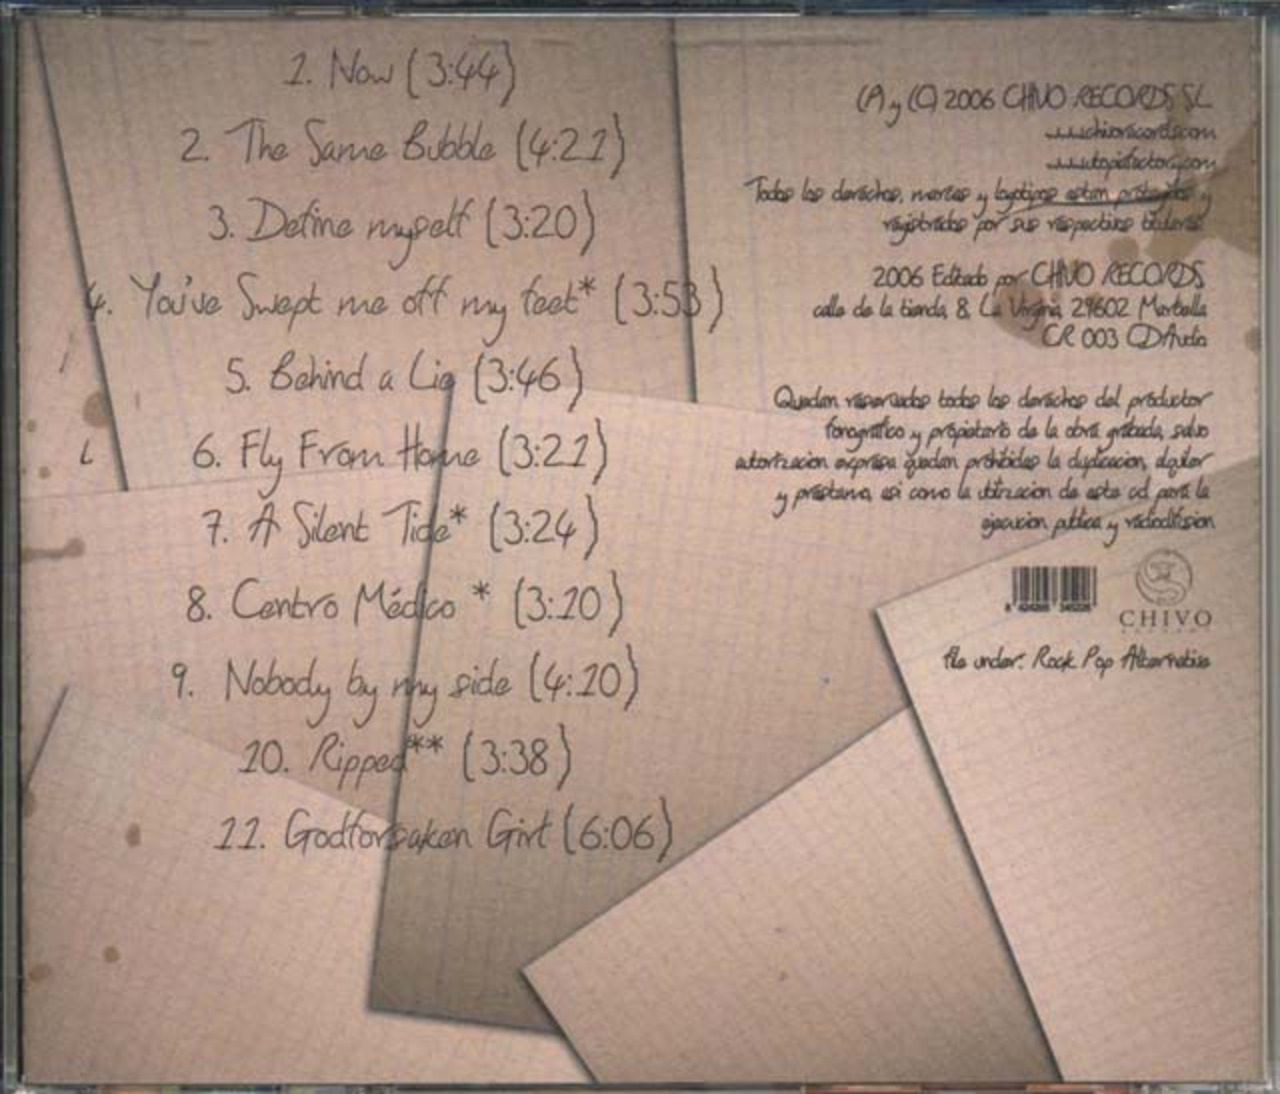 1. Now (3:44)
2. The Same Bubble (4:21)
3. Define myself (3:20)
4. You've Swept me off my feet* (3:53)
5. Behind a Lie (3:46)
6. Fly From Home (3:21)
7. A Silent Tide* (3:24)
8. Centro Médico * (3:10)
9. Nobody by my side (4:10)
10. Ripped** (3:38)
11. Godforsaken Girl (6:06)
(P) y (C) 2006 CHIVO RECORDS SL
www.chivorecords.com
www.utopiafactory.com
Todos los derechos, marcas y logotipos estan protegidos y
registrados por sus respectivos titulares.
2006 Editado por CHIVO RECORDS
calle de la tienda, 8, La Virginia, 29602 Marbella
CR 003 CDAudio
Quedan reservados todos los derechos del productor
fonográfico y propietario de la obra grabada, salvo
autorizacion expresa quedan prohibidas la duplicacion, alquiler
y prestamo, asi como la utilizacion de este cd para la
ejecucion publica y radiodifusion
CHIVO
file under: Rock Pop Alternativo